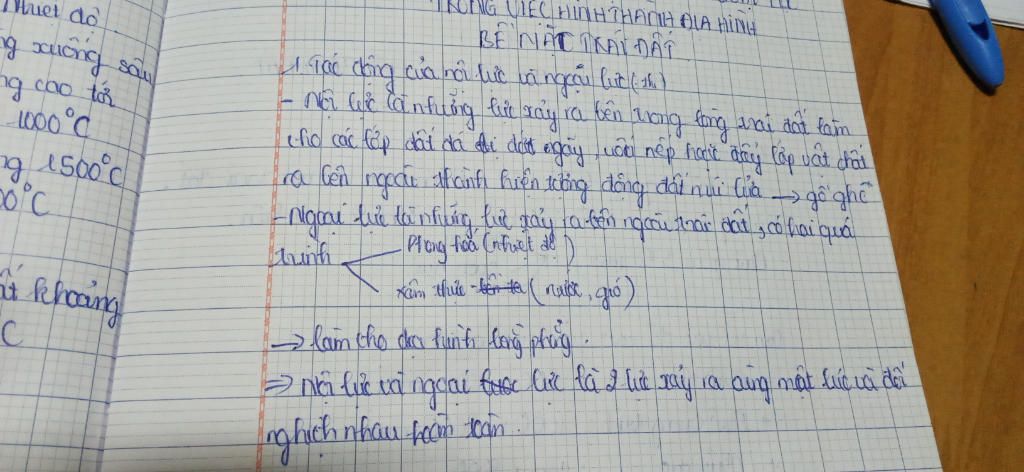 Nhiệt độ
ng xuống sâu
ng cao tới
1000°C
ng 1500°C
00°C
ất khoảng
C
TRONG VIỆC HÌNH THÀNH ĐỊA HÌNH
BỀ MẶT TRÁI ĐẤT
1. Tác động của nội lực và ngoại lực (th)
- Nội lực là những lực xảy ra bên trong lòng trái đất làm
cho các lớp đất đá bị đứt ngãy, uốn nếp hoặc đẩy lớp vật chất
ra bên ngoài thành hiện tượng động đất núi lửa → gồ ghề
- Ngoại lực là những lực xảy ra bên ngoài trái đất, có hai quá
trình
Phong hoá (nhiệt độ)
xâm thực (nước, gió)
→ làm cho địa hình bằng phẳng.
⇒ Nội lực và ngoại lực là 2 lực xảy ra cùng một lúc và đối
nghịch nhau hoàn toàn.